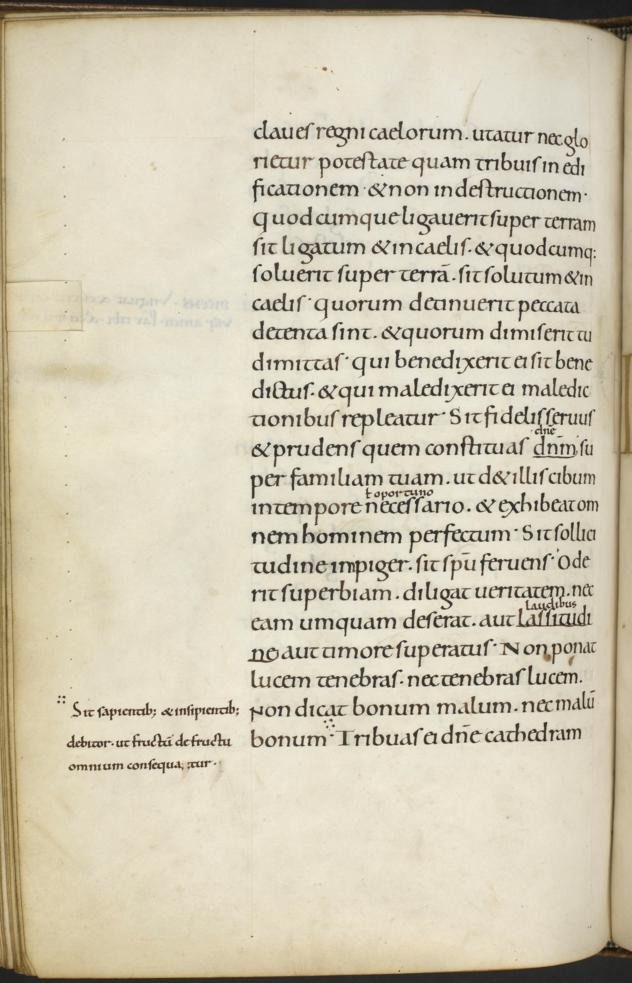 claues regni caelorum. utatur nec glo
rietur potestate quam tribuis in edi
ficationem · & non in destructionem ·
quodcumque ligauerit super terram
sit ligatum & in caelis · & quodcumq:
soluerit super terrā · sit solutum & in
caelis · quorum detinuerit peccata
detenta sint · & quorum dimiserit tu
dimittas · qui benedixerit ei sit bene
dictus · & qui maledixerit ei maledic
tionibus repleatur · Sit fidelis seruus
dn̄e
& prudens quem constituas dnm̄ su
per familiam tuam · ut d& illis cibum
ł oportuno
in tempore necessario · & exhibeat om
nem hominem perfectum · Sit sollici
tudine impiger · sit sp̄u feruens · Ode
rit superbiam · diligat ueritatem · nec
laudibus
eam umquam deserat · aut lassitudi
ne aut timore superatus · Non ponat
lucem tenebras · nec tenebras lucem ·
Non dicat bonum malum · nec malū
bonum · Tribuas ei dn̄e cathedram
Sit sapientib; & insipientib;
debitor · ut fructū de fructu
omnium consequatur ·